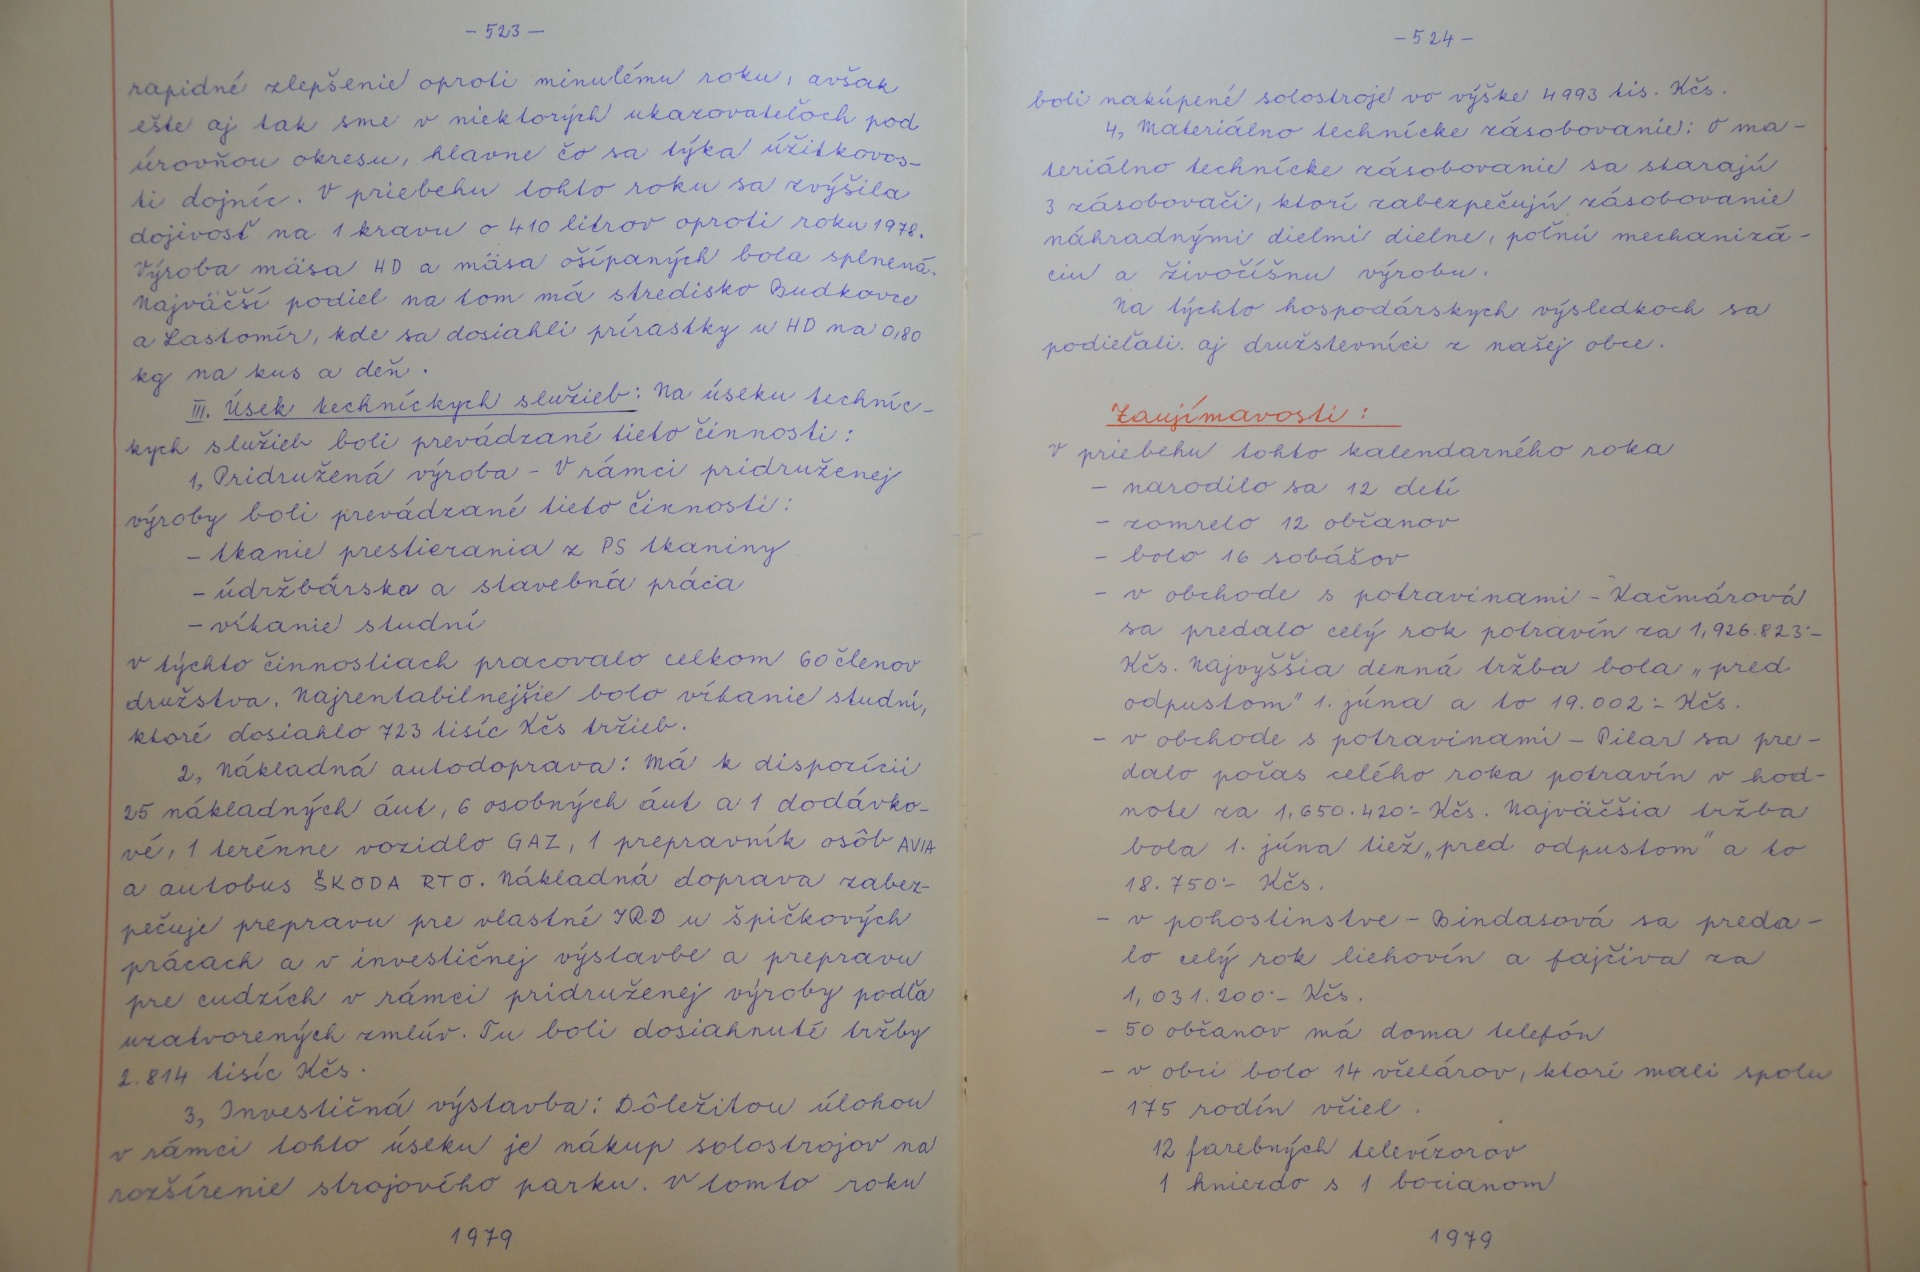 - 523 -
rapidné zlepšenie oproti minulému roku, avšak
ešte aj tak sme v niektorých ukazovateľoch pod
úrovňou okresu, hlavne čo sa týka úžitkovos-
ti dojníc. V priebehu tohto roku sa zvýšila
dojivosť na 1 kravu o 410 litrov oproti roku 1978.
Výroba mäsa HD a mäsa ošípaných bola splnená.
Najväčší podiel na tom má stredisko Budkovce
a Lastomír, kde sa dosiahli prírastky u HD na 0,80
kg na kus a deň.
III. Úsek techníckych služieb: Na úseku techníc-
kych služieb boli prevádzané tieto činnosti:
1, Pridružená výroba - V rámci pridruženej
výroby boli prevádzané tieto činnosti:
- tkanie prestierania z PS tkaniny
- údržbárska a stavebná práca
- vŕtanie studní
v týchto činnostiach pracovalo celkom 60 členov
družstva. Najrentabilnejšie bolo vŕtanie studní,
ktoré dosiahlo 723 tisíc Kčs tržieb.
2, Nákladná autodoprava: Má k dispozícii
25 nákladných áut, 6 osobných áut a 1 dodávko-
vé, 1 terénne vozidlo GAZ, 1 prepravník osôb AVIA
a autobus ŠKODA RTO. Nákladná doprava zabez-
pečuje prepravu pre vlastné JRD u špičkových
prácach a v investičnej výstavbe a prepravu
pre cudzích v rámci pridruženej výroby podľa
uzatvorených zmlúv. Tu boli dosiahnuté tržby
2.814 tisíc Kčs.
3, Investičná výstavba: Dôležitou úlohou
v rámci tohto úseku je nákup solostrojov na
rozšírenie strojového parku. V tomto roku
1979
- 524 -
boli nakúpené solostroje vo výške 4993 tis. Kčs.
4, Materiálno technícke zásobovanie: O ma-
teriálno technícke zásobovanie sa starajú
3 zásobovači, ktorí zabezpečujú zásobovanie
náhradnými dielmi dielne, poľnú mechanizá-
ciu a živočíšnu výrobu.
Na týchto hospodárskych výsledkoch sa
podieľali aj družstevníci z našej obce.
Zaujímavosti:
V priebehu tohto kalendarného roka
- narodilo sa 12 detí
- zomrelo 12 občanov
- bolo 16 sobášov
- v obchode s potravinami - Kačmárová
sa predalo celý rok potravín za 1,926.823.-
Kčs. Najvyššia denná tržba bola "pred
odpustom" 1. júna a to 19.002.- Kčs.
- v obchode s potravinami - Pilar sa pre-
dalo počas celého roka potravín v hod-
note za 1,650.420.- Kčs. Najväčšia tržba
bola 1. júna tiež "pred odpustom" a to
18.750.- Kčs.
- v pohostinstve - Bindasová sa preda-
lo celý rok liehovín a fajčiva za
1,031.200.- Kčs.
- 50 občanov má doma telefón
- v obci bolo 14 včelárov, ktorí mali spolu
175 rodín včiel.
12 farebných televízorov
1 hniezdo s 1 bocianom
1979